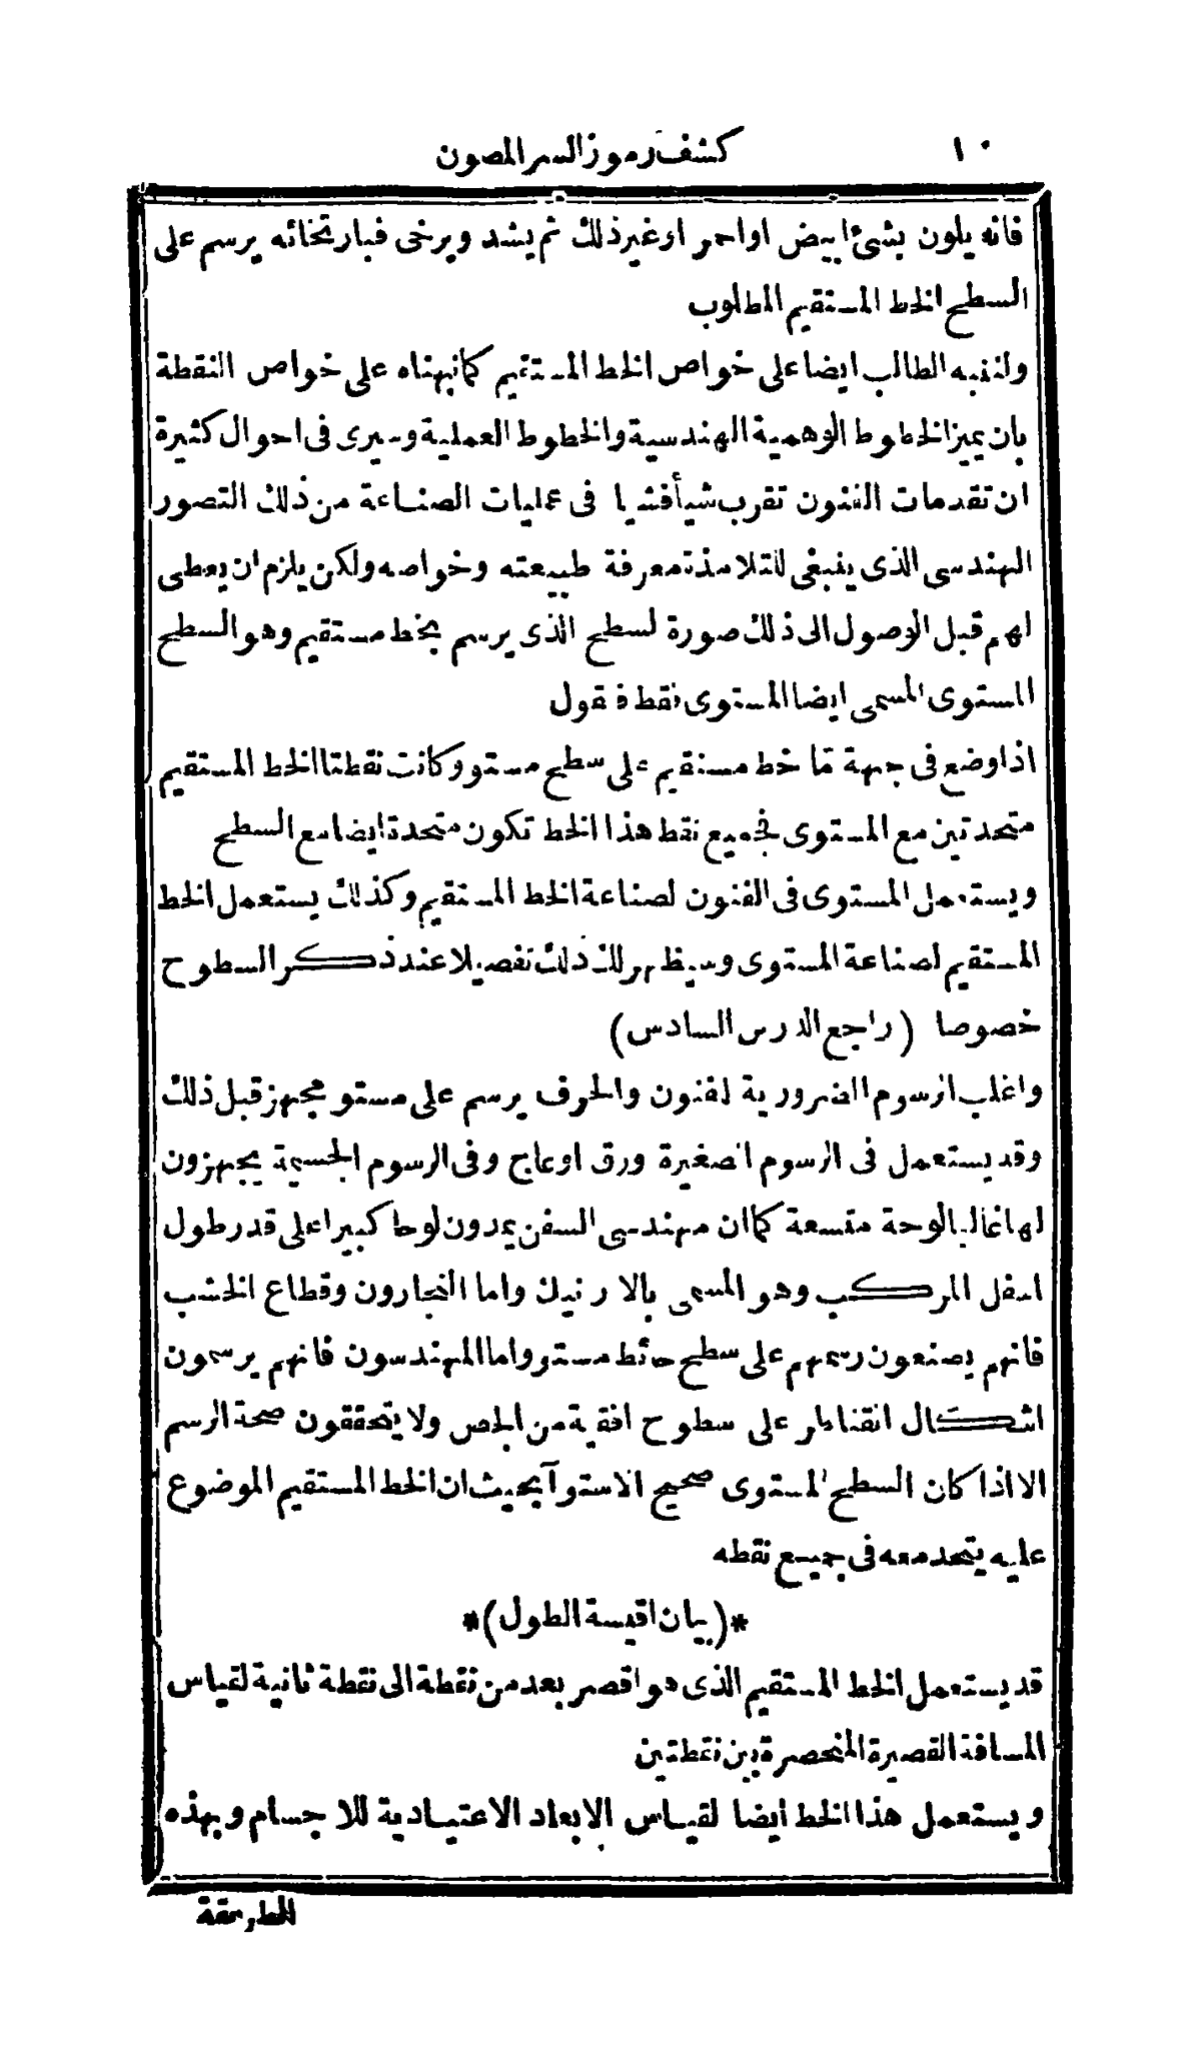 ١٠
كشف رموز السر المصون
فانه يلون بشئ ابيض او احمر او غير ذلك ثم يشد ويرخى فبارتخائه يرسم على
السطح الخط المستقيم المطلوب
ولننبه الطالب ايضا على خواص الخط المستقيم كما نبهناه على خواص النقطة
بان يميز الخطوط الوهمية الهندسية والخطوط العملية وسيرى فى احوال كثيرة
ان تقدمات الفنون تقرب شيأ فشيا فى عمليات الصناعة من ذلك التصور
الهندسى الذى ينبغى للتلامذة معرفة طبيعته وخواصه ولكن يلزم ان يعطى
لهم قبل الوصول الى ذلك صورة لسطح الذى يرسم بخط مستقيم وهو السطح
المستوى المسمى ايضا المستوى فقط فنقول
اذا وضع فى جهة مّا خط مستقيم على سطح مستو وكانت نقطتا الخط المستقيم
متحدتين مع المستوى فجميع نقط هذا الخط تكون متحدة ايضا مع السطح
ويستعمل المستوى فى الفنون لصناعة الخط المستقيم وكذلك يستعمل الخط
المستقيم لصناعة المستوى وسيظهر لك ذلك تفصيلا عند ذكر السطوح
خصوصا (راجع الدرس السادس)
واغلب الرسوم الضرورية لفنون والحرف يرسم على مستو مجهز قبل ذلك
وقد يستعمل فى الرسوم الصغيرة ورق او عاج وفى الرسوم الجسيمة يجهزون
لها غالبا لوحة متسعة كما ان مهندسى السفن يمدون لوحا كبيرا على قدر طول
اسفل المركب وهو المسمى بالارنيك واما النجارون وقطاع الخشب
فانهم يصنعون رسمهم على سطح حائط مستو واما المهندسون فانهم يرسمون
اشكال القناطر على سطوح افقية من الجص ولا يتحققون صحة الرسم
الا اذا كان السطح المستوى صحيح الاستوآ بحيث ان الخط المستقيم الموضوع
عليه يتحد معه فى جميع نقطه
*(بيان اقيسة الطول)*
قد يستعمل الخط المستقيم الذى هو اقصر بعد من نقطة الى نقطة ثانية لقياس
المسافة القصيرة المنحصرة بين نقطتين
ويستعمل هذا الخط ايضا لقياس الابعاد الاعتيادية للاجسام وبهذه
الطريقة